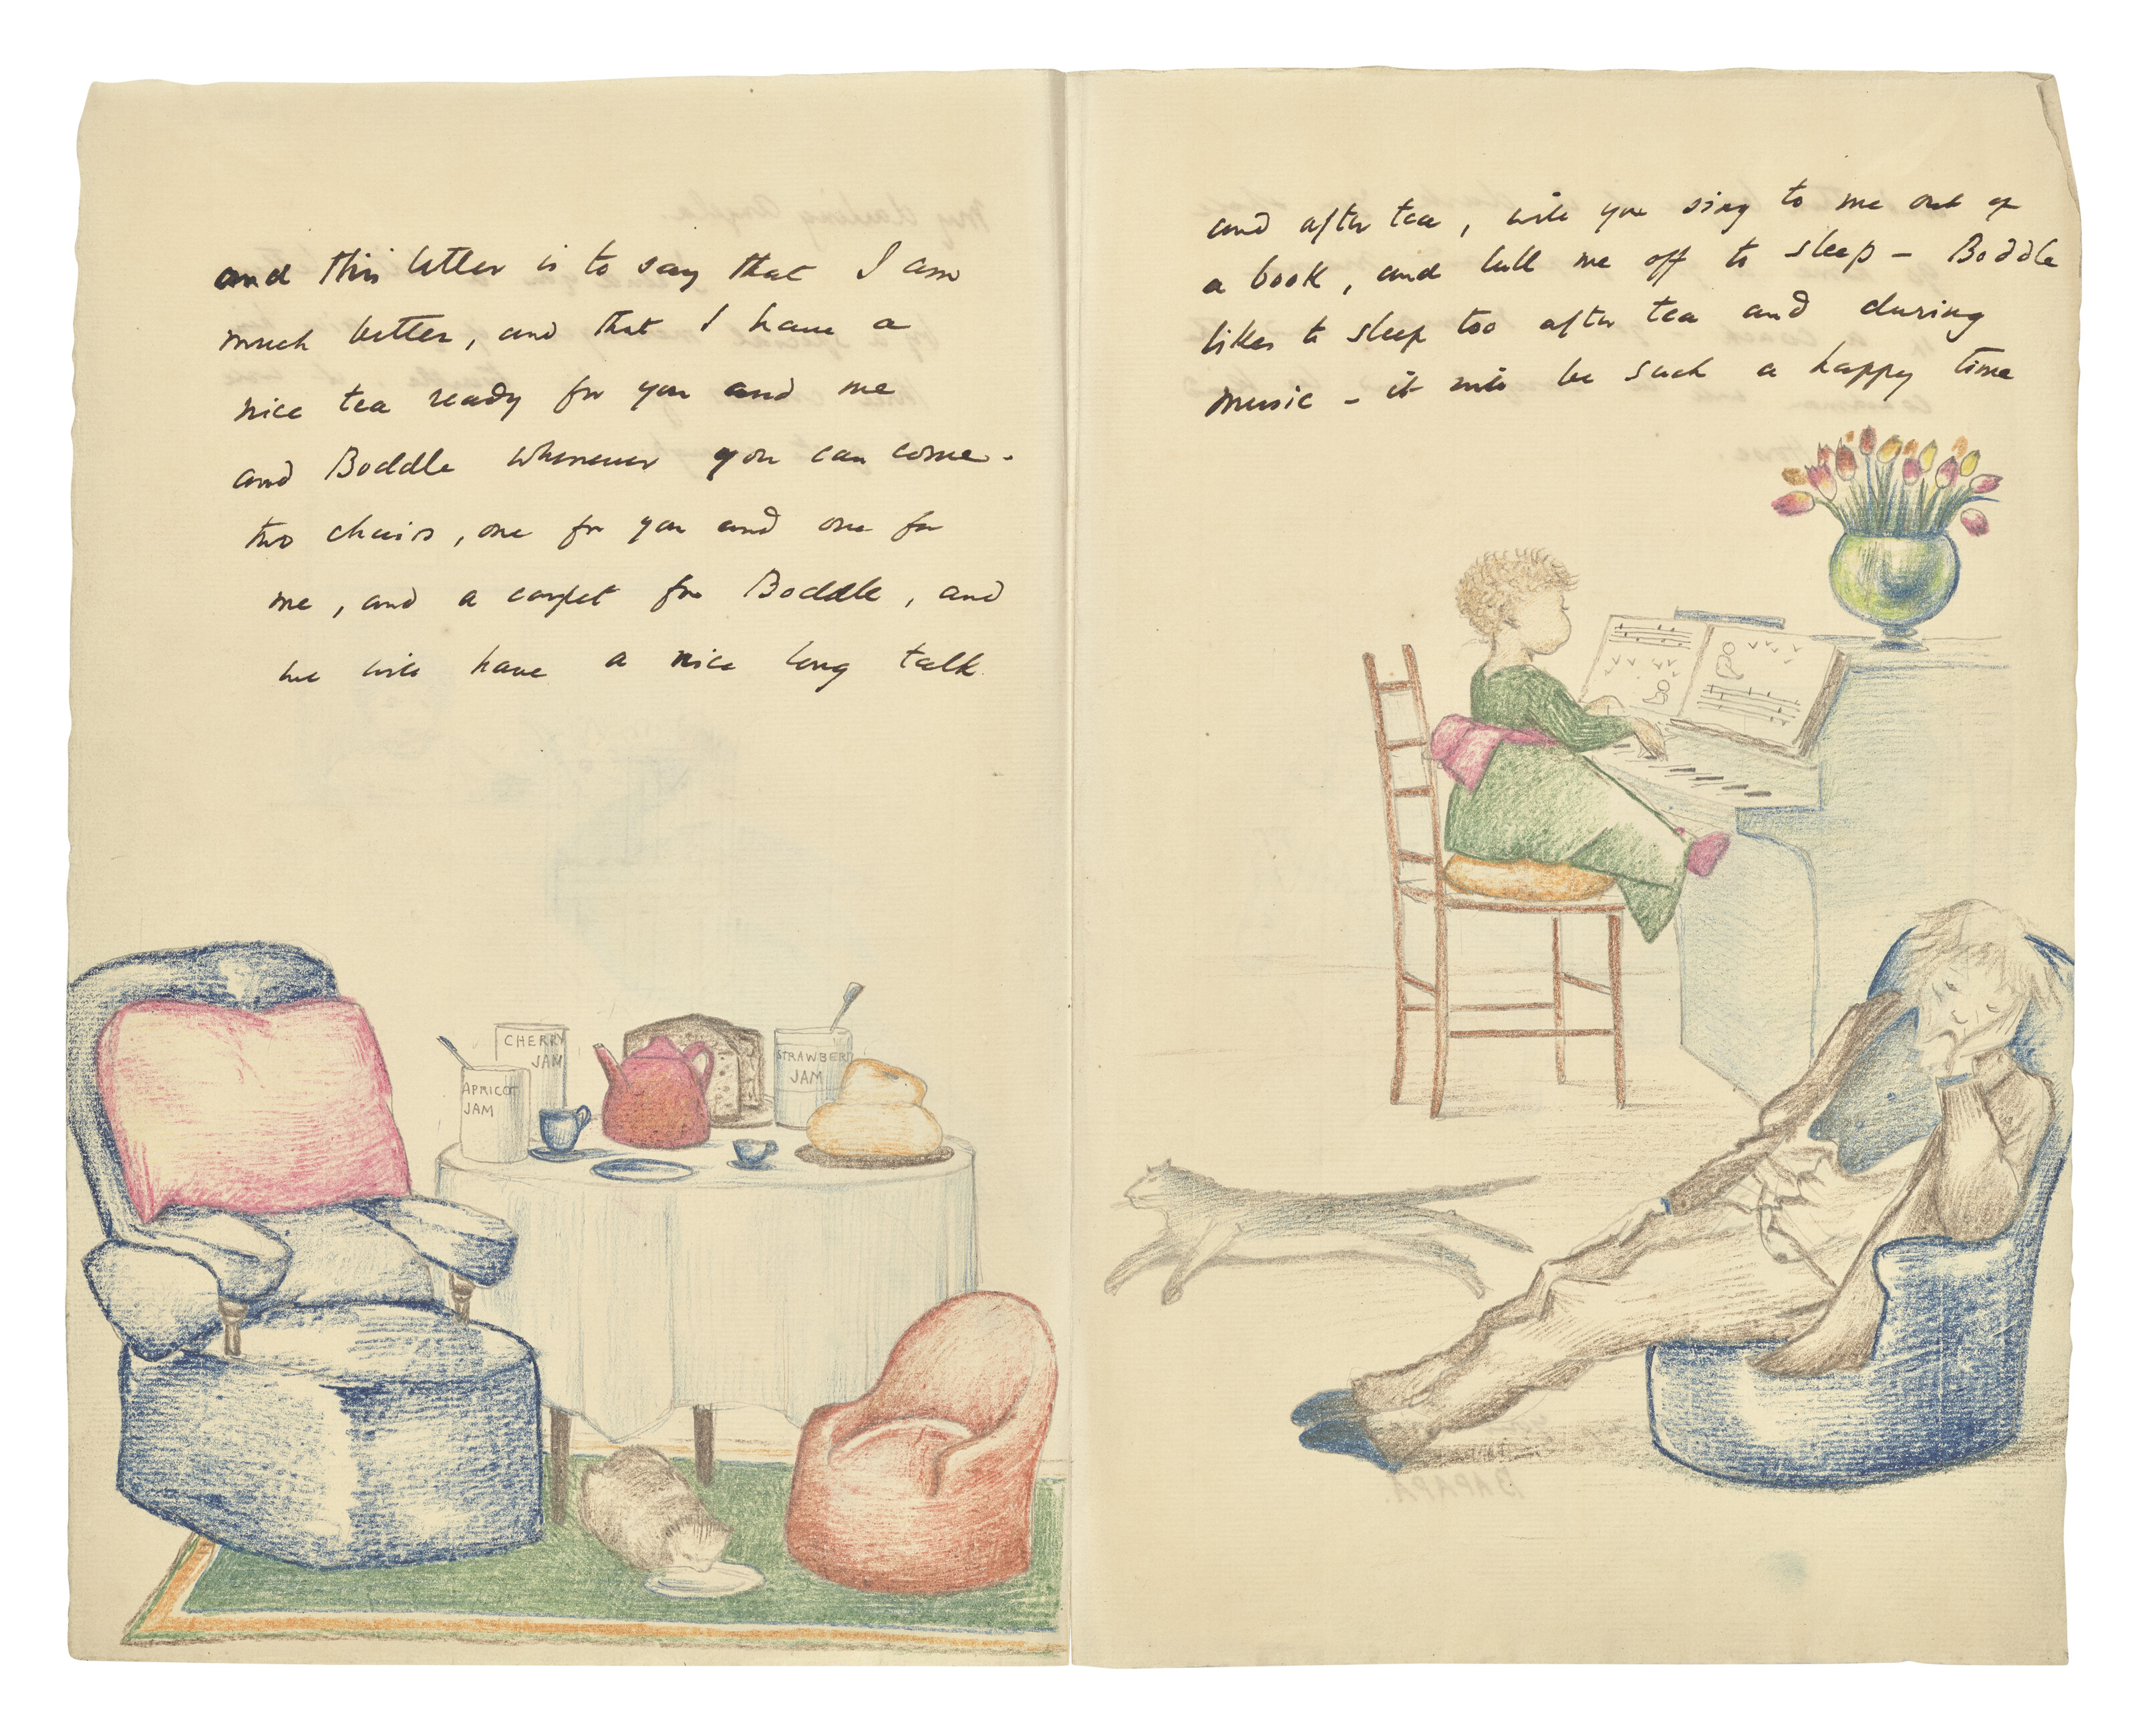 and this letter is to say that I am
much better, and that I have a
nice tea ready for you and me
and Boddle whenever you can come.
two chairs, one for you and one for
me, and a carpet for Boddle, and
we will have a nice long talk.
CHERRY
JAM
APRICOT
JAM
STRAWBER
JAM
and after tea, will you sing to me out of
a book, and lull me off to sleep - Boddle
likes to sleep too after tea and during
music - it will be such a happy time
My darling Angela.
PAPAPA.